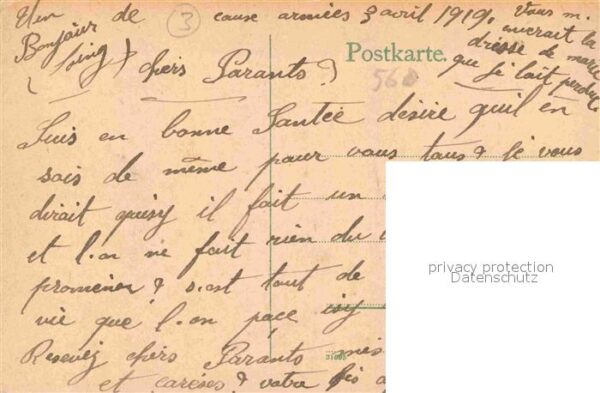 Un de cause armées 3 avril 1919. Vous m.
enverait la
Bonjour
dresse de marie
Postkarte.
que je lait perdue.
(loing)
chers Parants ?
3
568
Suis en bonne Santée désire quil en
sois de même pour vous tous & Je vous
dirait quisy il fait un
et l.on ne fait rien du
promener & s.est tout de
vie que l.on pace isy
Resevez chers Parants mes
et carèses & votre fis
privacy protection
Datenschutz